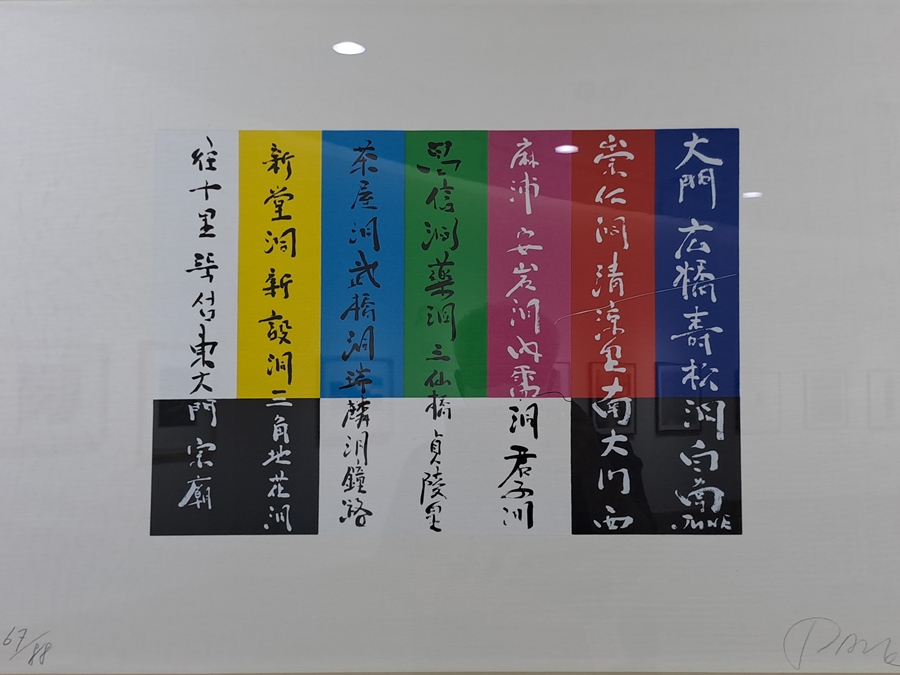 往十里 東大門 宗廟
新堂洞新設洞三角地花洞
茶屋洞武橋洞瑞麟洞鐘路
信洞藥洞三仙橋貞陵里
麻浦安岩洞内需洞君子洞
崇仁洞清凉里南大门西
大門広橋壽松洞白南JUNE
67/88
PAIK